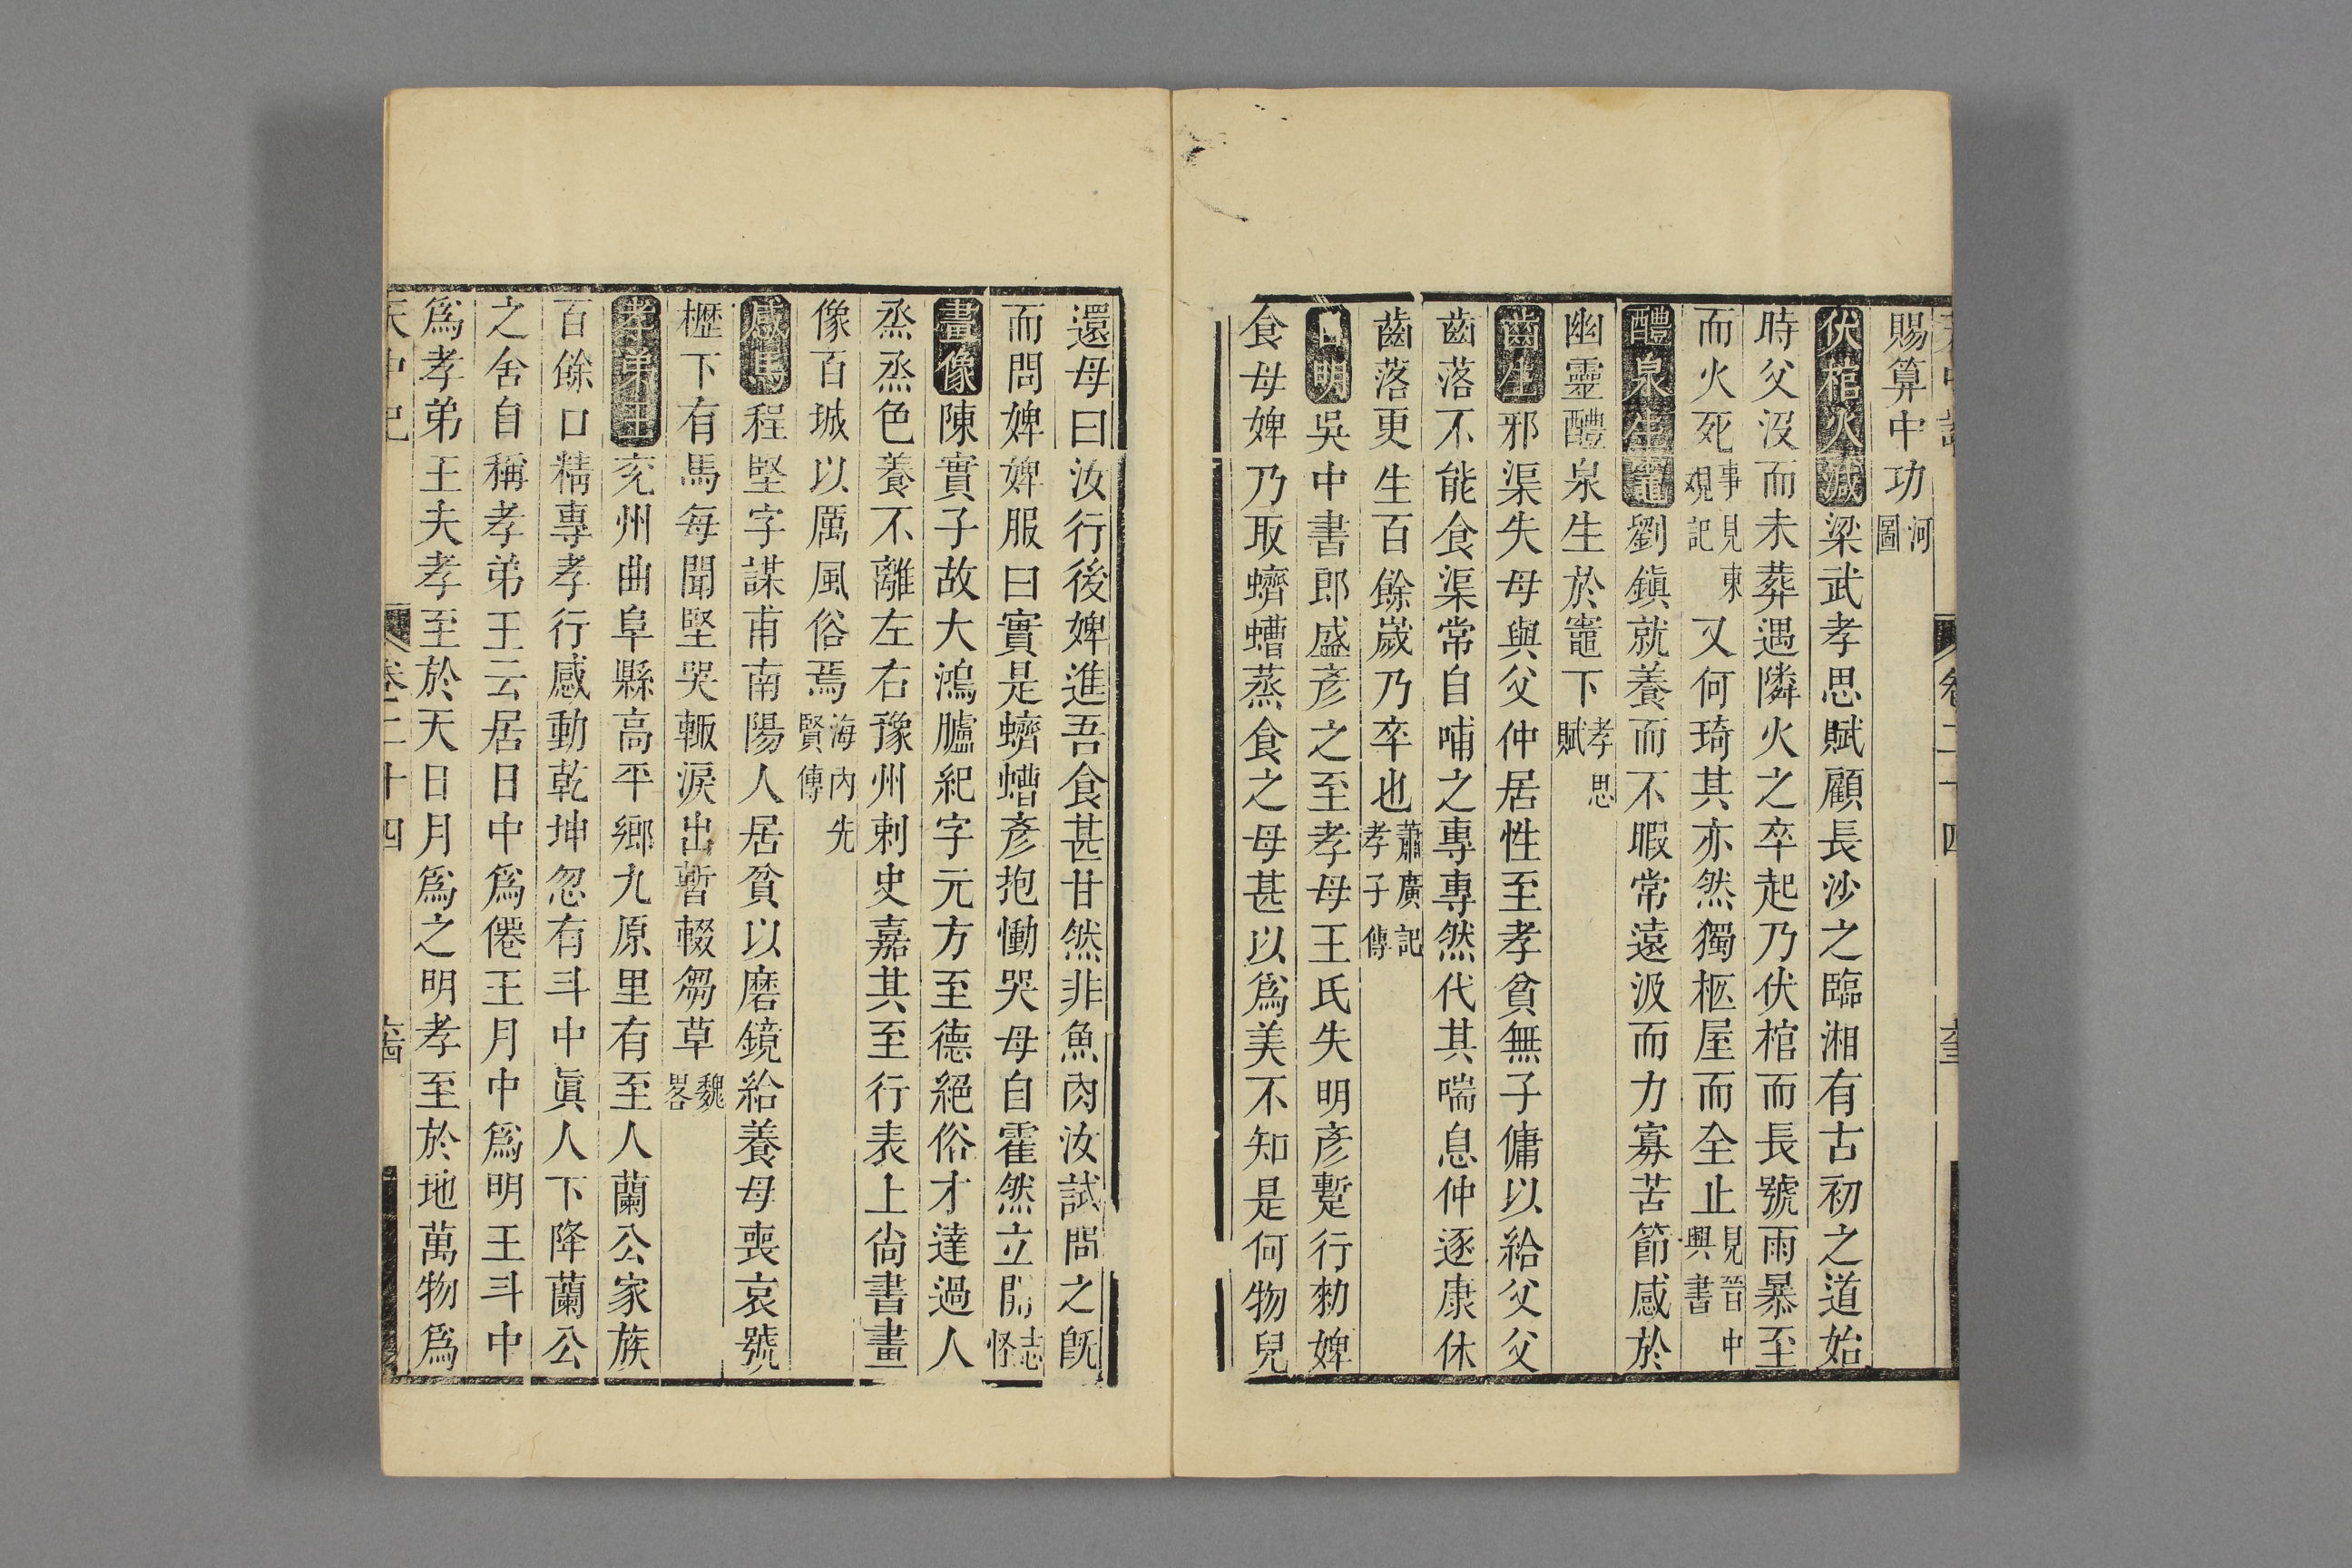 賜算中功河圖
伏棺火滅梁武孝思賦顧長沙之臨湘有古初之道始
時父沒而未葬遇隣火之卒起乃伏棺而長號雨暴至
而火死事見東觀記又何琦其亦然獨柩屋而全止見晉中興書
醴泉生竈劉鎮就養而不暇常遠汲而力寡苦節感於
幽靈醴泉生於竈下孝思賦
齒生邪渠失母與父仲居性至孝貧無子傭以給父父
齒落不能食渠常自哺之專專然代其喘息仲逐康休
齒落更生百餘嵗乃卒也蕭廣記孝子傳
目明吳中書郎盛彥之至孝母王氏失明彥蹔行勑婢
食母婢乃取蠐螬蒸食之母甚以爲美不知是何物兒
還母曰汝行後婢進吾食甚甘然非魚肉汝試問之旣
而問婢婢服曰實是蠐螬彥抱慟哭母自霍然立開志怪
畫像陳實子故大鴻臚紀字元方至德絕俗才達過人
烝烝色養不離左右豫州刺史嘉其至行表上尙書畫
像百城以厲風俗焉海內先賢傳
感馬程堅字謀甫南陽人居貧以磨鏡給養母喪哀號
櫪下有馬每聞堅哭輙淚出暫輟芻草魏畧
孝弟王兖州曲阜縣高平鄉九原里有至人蘭公家族
百餘口精專孝行感動乾坤忽有斗中眞人下降蘭公
之舍自稱孝弟王云居日中爲僊王月中爲明王斗中
爲孝弟王夫孝至於天日月爲之明孝至於地萬物爲
天中記 卷二十四